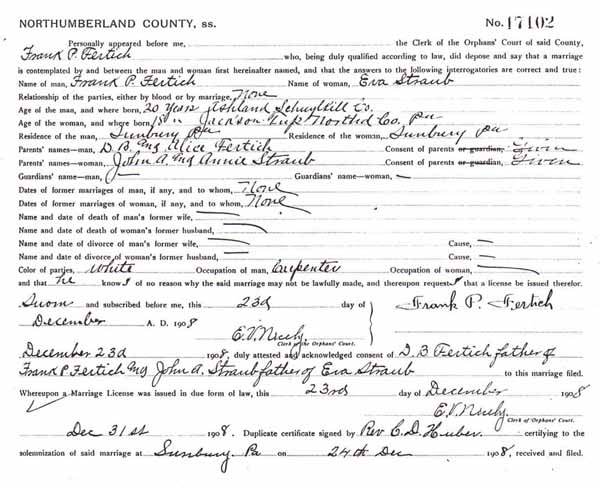 NORTHUMBERLAND COUNTY, ss. No. 17102
Personally appeared before me, the Clerk of the Orphans' Court of said County,
Frank P. Fertich who, being duly qualified according to law, did depose and say that a marriage
is contemplated by and between the man and woman first hereinafter named, and that the answers to the following interrogatories are correct and true:
Name of man, Frank P. Fertich Name of woman, Eva Straub
Relationship of the parties, either by blood or by marriage, None
Age of the man, and where born, 20 Years Ashland Schuylkill Co.
Age of the woman, and where born, 18 " Jackson Twp North'd Co. Pa
Residence of the man, Sunbury Pa Residence of the woman, Sunbury Pa
Parents' names—man, D. B. and Alice Fertich Consent of parents or guardian, Given
Parents' names—woman, John A. and Annie Straub Consent of parents or guardian, Given
Guardians' name—man, — Guardians' name—woman, —
Dates of former marriages of man, if any, and to whom, None
Dates of former marriages of woman, if any, and to whom, None
Name and date of death of man's former wife, —
Name and date of death of woman's former husband, —
Name and date of divorce of man's former wife, — Cause, —
Name and date of divorce of woman's former husband, — Cause, —
Color of parties, White Occupation of man, Carpenter Occupation of woman, —
and that he knows of no reason why the said marriage may not be lawfully made, and thereupon requests that a license be issued therefor.
Sworn and subscribed before me, this 23d day of
December A. D. 1908 Frank P. Fertich
Clerk of the Orphans' Court.
December 23d 1908, duly attested and acknowledged consent of D. B Fertich father of
Frank P. Fertich and John A. Straub father of Eva Straub to this marriage filed.
Whereupon a Marriage License was issued in due form of law, this 23rd day of December 1908
Clerk of Orphans' Court.
Dec 31st 1908. Duplicate certificate signed by Rev C. D. Huber certifying to the
solemnization of said marriage at Sunbury, Pa on 24th Dec 1908, received and filed.